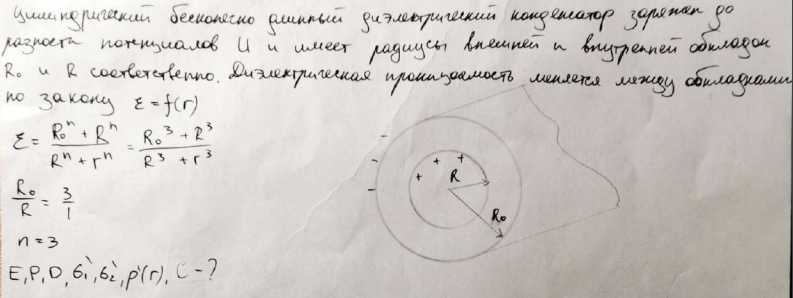 Цилиндрический бесконечно длинный диэлектрический конденсатор заряжен до
разности потенциалов U и имеет радиусы внешней и внутренней обкладок
R₀ и R соответственно. Диэлектрическая проницаемость меняется между обкладками
по закону ε = f(r)
ε = (R₀ⁿ + Rⁿ)/(Rⁿ + rⁿ) = (R₀³ + R³)/(R³ + r³)
R₀/R = 3/1
n = 3
E, P, D, σ₁', σ₂', ρ'(r), C - ?
- + + +
- R
- R₀